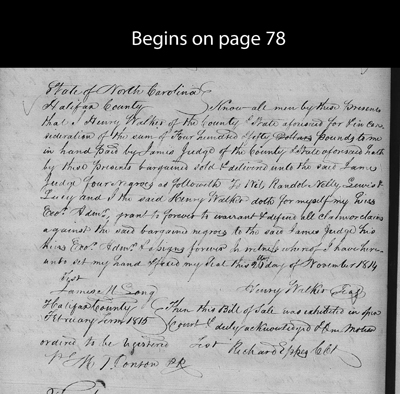 Begins on page 78
State of North Carolina
Halifax County Know all men by these Presents
that I Henry Walker of the County & State aforesaid for & in con
sideration of the sum of Four hundred & fifty Dollars pounds to me
in hand paid by James Judge of the County & State aforesaid hath
by these Presents bargained sold & delivered unto the said James
Judge four negroes as followeth To Wit, Nelly Lewis &
Lucy and I the said Henry Walker doth for myself my heirs
Exors Admrs, grant to forever to warrant & defend all claim or claims
against the said bargained negroes to the said James Judge his
heirs Exors Admrs & assigns forever In witness whereof I have here
unto set my hand & fixed my Seal this day of November 1814
Test
Long Henry Walker Seal
Halifax County Then this Bill of Sale was exhibited in open
February Term 1815 Court & duly acknowledged & on motion
ordered to be registered Test Richard Eppes Clk
M J Ponson PR